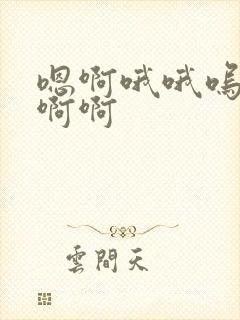 嗯啊哦哦嗚
啊啊
雲間天